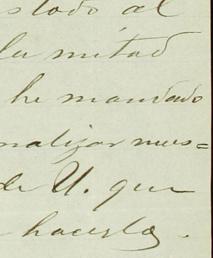 stado al
la mitad
he mandado
nalizar nues=
de U. que
hacerlo.